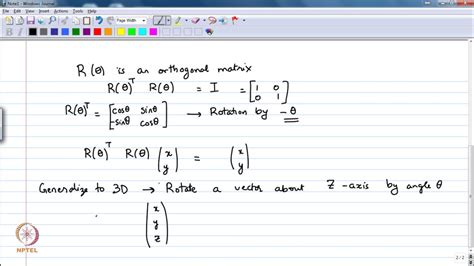 Note1 - Windows Journal
File Edit View Insert Actions Tools Help
Page Width
R(θ) is an orthogonal matrix
R(θ)ᵀ R(θ) = I = [1 0
0 1]
R(θ)ᵀ = [cosθ sinθ
-sinθ cosθ] → Rotation by -θ
R(θ)ᵀ R(θ) (x
y) = (x
y)
Generalize to 3D → Rotate a vector about Z-axis by angle θ
(x
y
z)
NPTEL
2/2